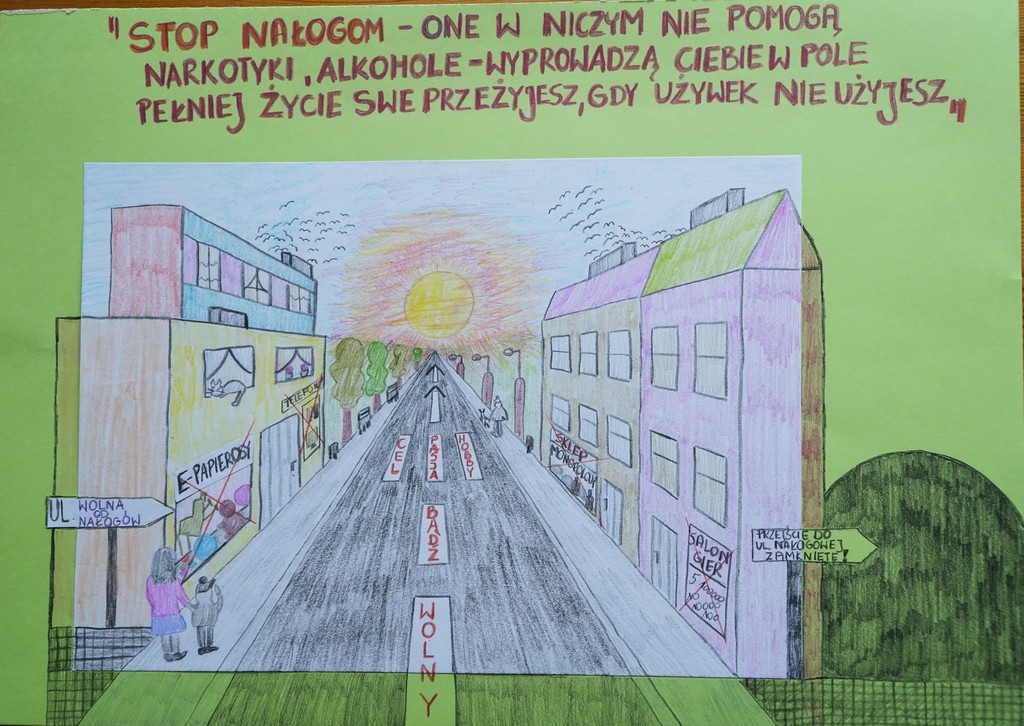 "STOP NAŁOGOM - ONE W NICZYM NIE POMOGĄ
NARKOTYKI, ALKOHOLE - WYPROWADZĄ CIEBIE W POLE
PEŁNIEJ ŻYCIE SWE PRZEŻYJESZ, GDY UŻYWEK NIE UŻYJESZ"
TELEFONY
E-PAPIEROSY
UL. WOLNA
OD
NAŁOGÓW
CEL
PASJA
HOBBY
BĄDŹ
WOLNY
SKLEP
MONOPOLOWY
SALON
GIER
5 100000
10 10000
10000
100
PRZEJŚCIE DO
UL. NAŁOGOWEJ
ZAMKNIĘTE!